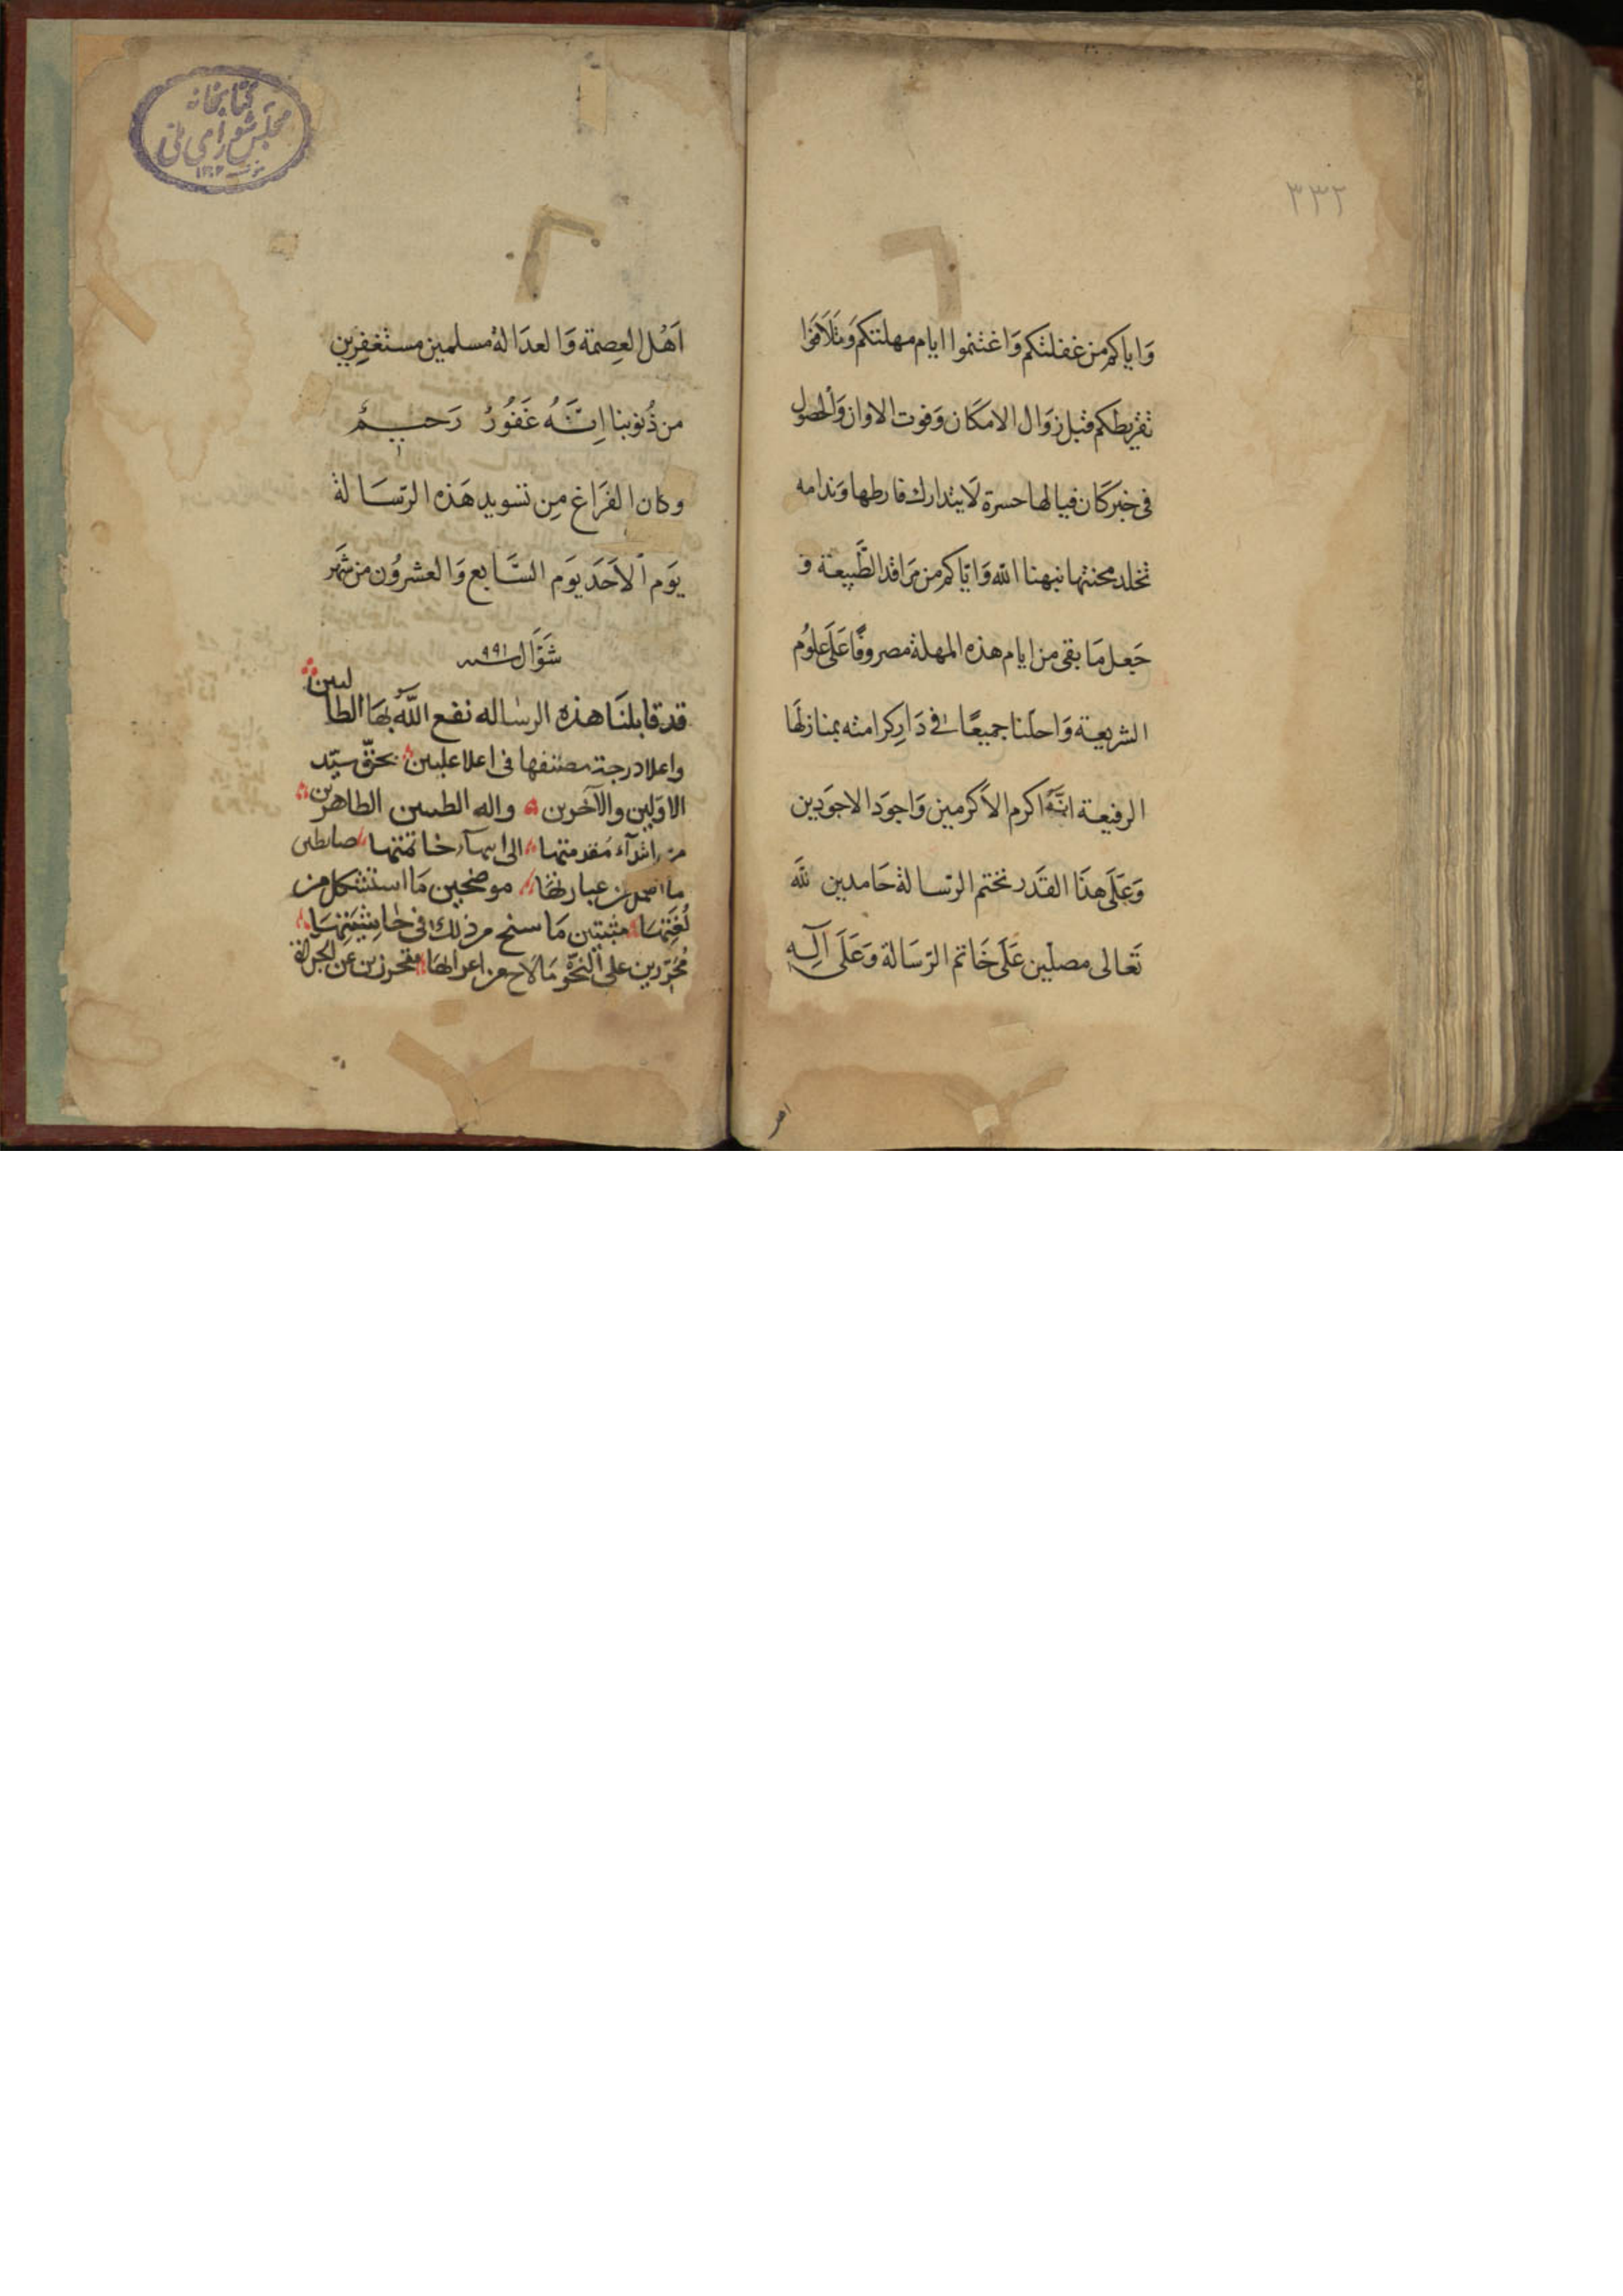 ٣٣٢
وَاياكم من غفلتكم وَاغتنموا ايام مهلتكم وَتَلَافَوْا
تفريطكم قبل زوَال الامكَان وَفوت الاوان وَالحصول
فى خبر كَان فيا لها حسرة لَا يتدارك فارطها وَندامه
تخلد محنتها نبهنا الله وَاياكم من مَراقد الطَّبيعة وَ
جَعل مَا بقى من ايام هذه المهلة مصروفًا عَلَى علوُم
الشريعة وَاحلّنا جميعًا فى دَارِ كرامته بمنازلهَا
الرفيعة انَّهُ اكرم الاَكرمين وَاجوَد الاجوَدين
وَعَلَى هذَا القَدر نختم الرّسالة حَامدين لله
تَعالى مصلّين عَلَى خَاتم الرّسَالة وَعَلَى آلِهِ
كتابخانه
مجلس شوراى ملى
اَهْل العِصمَة وَالعدَالة مسلمين مستَغفِرِين
من ذُنوبنا اِنَّهُ غَفُورُ رَحيمُ
وكان الفَرَاغ مِن تسويد هَذه الرّسَالة
يَوم الاَحَد يَوم السَّابع وَالعشروُن من شَهر
شوَّال سنه ٩٩١
قد قابلنَا هذه الرساله نفع اللّه بهَا الطالبين
واعلا درجة مصنفها فى اعلا عليين بحقّ سيّد
الاوّلين والآخرين واله الطيبين الطاهرين
من ابتدآء مُقدمتها الى انهآء خاتمتها ضابطين
ما اهمل من عباراتها موضحين مَا استشكل من
لُغَتِهَا مثبتين مَا سنح من ذلك فى حَاشِيَتِهَا
مُحَرّرين على النّحو مَا لاح من اعرابهَا متحرزين عن